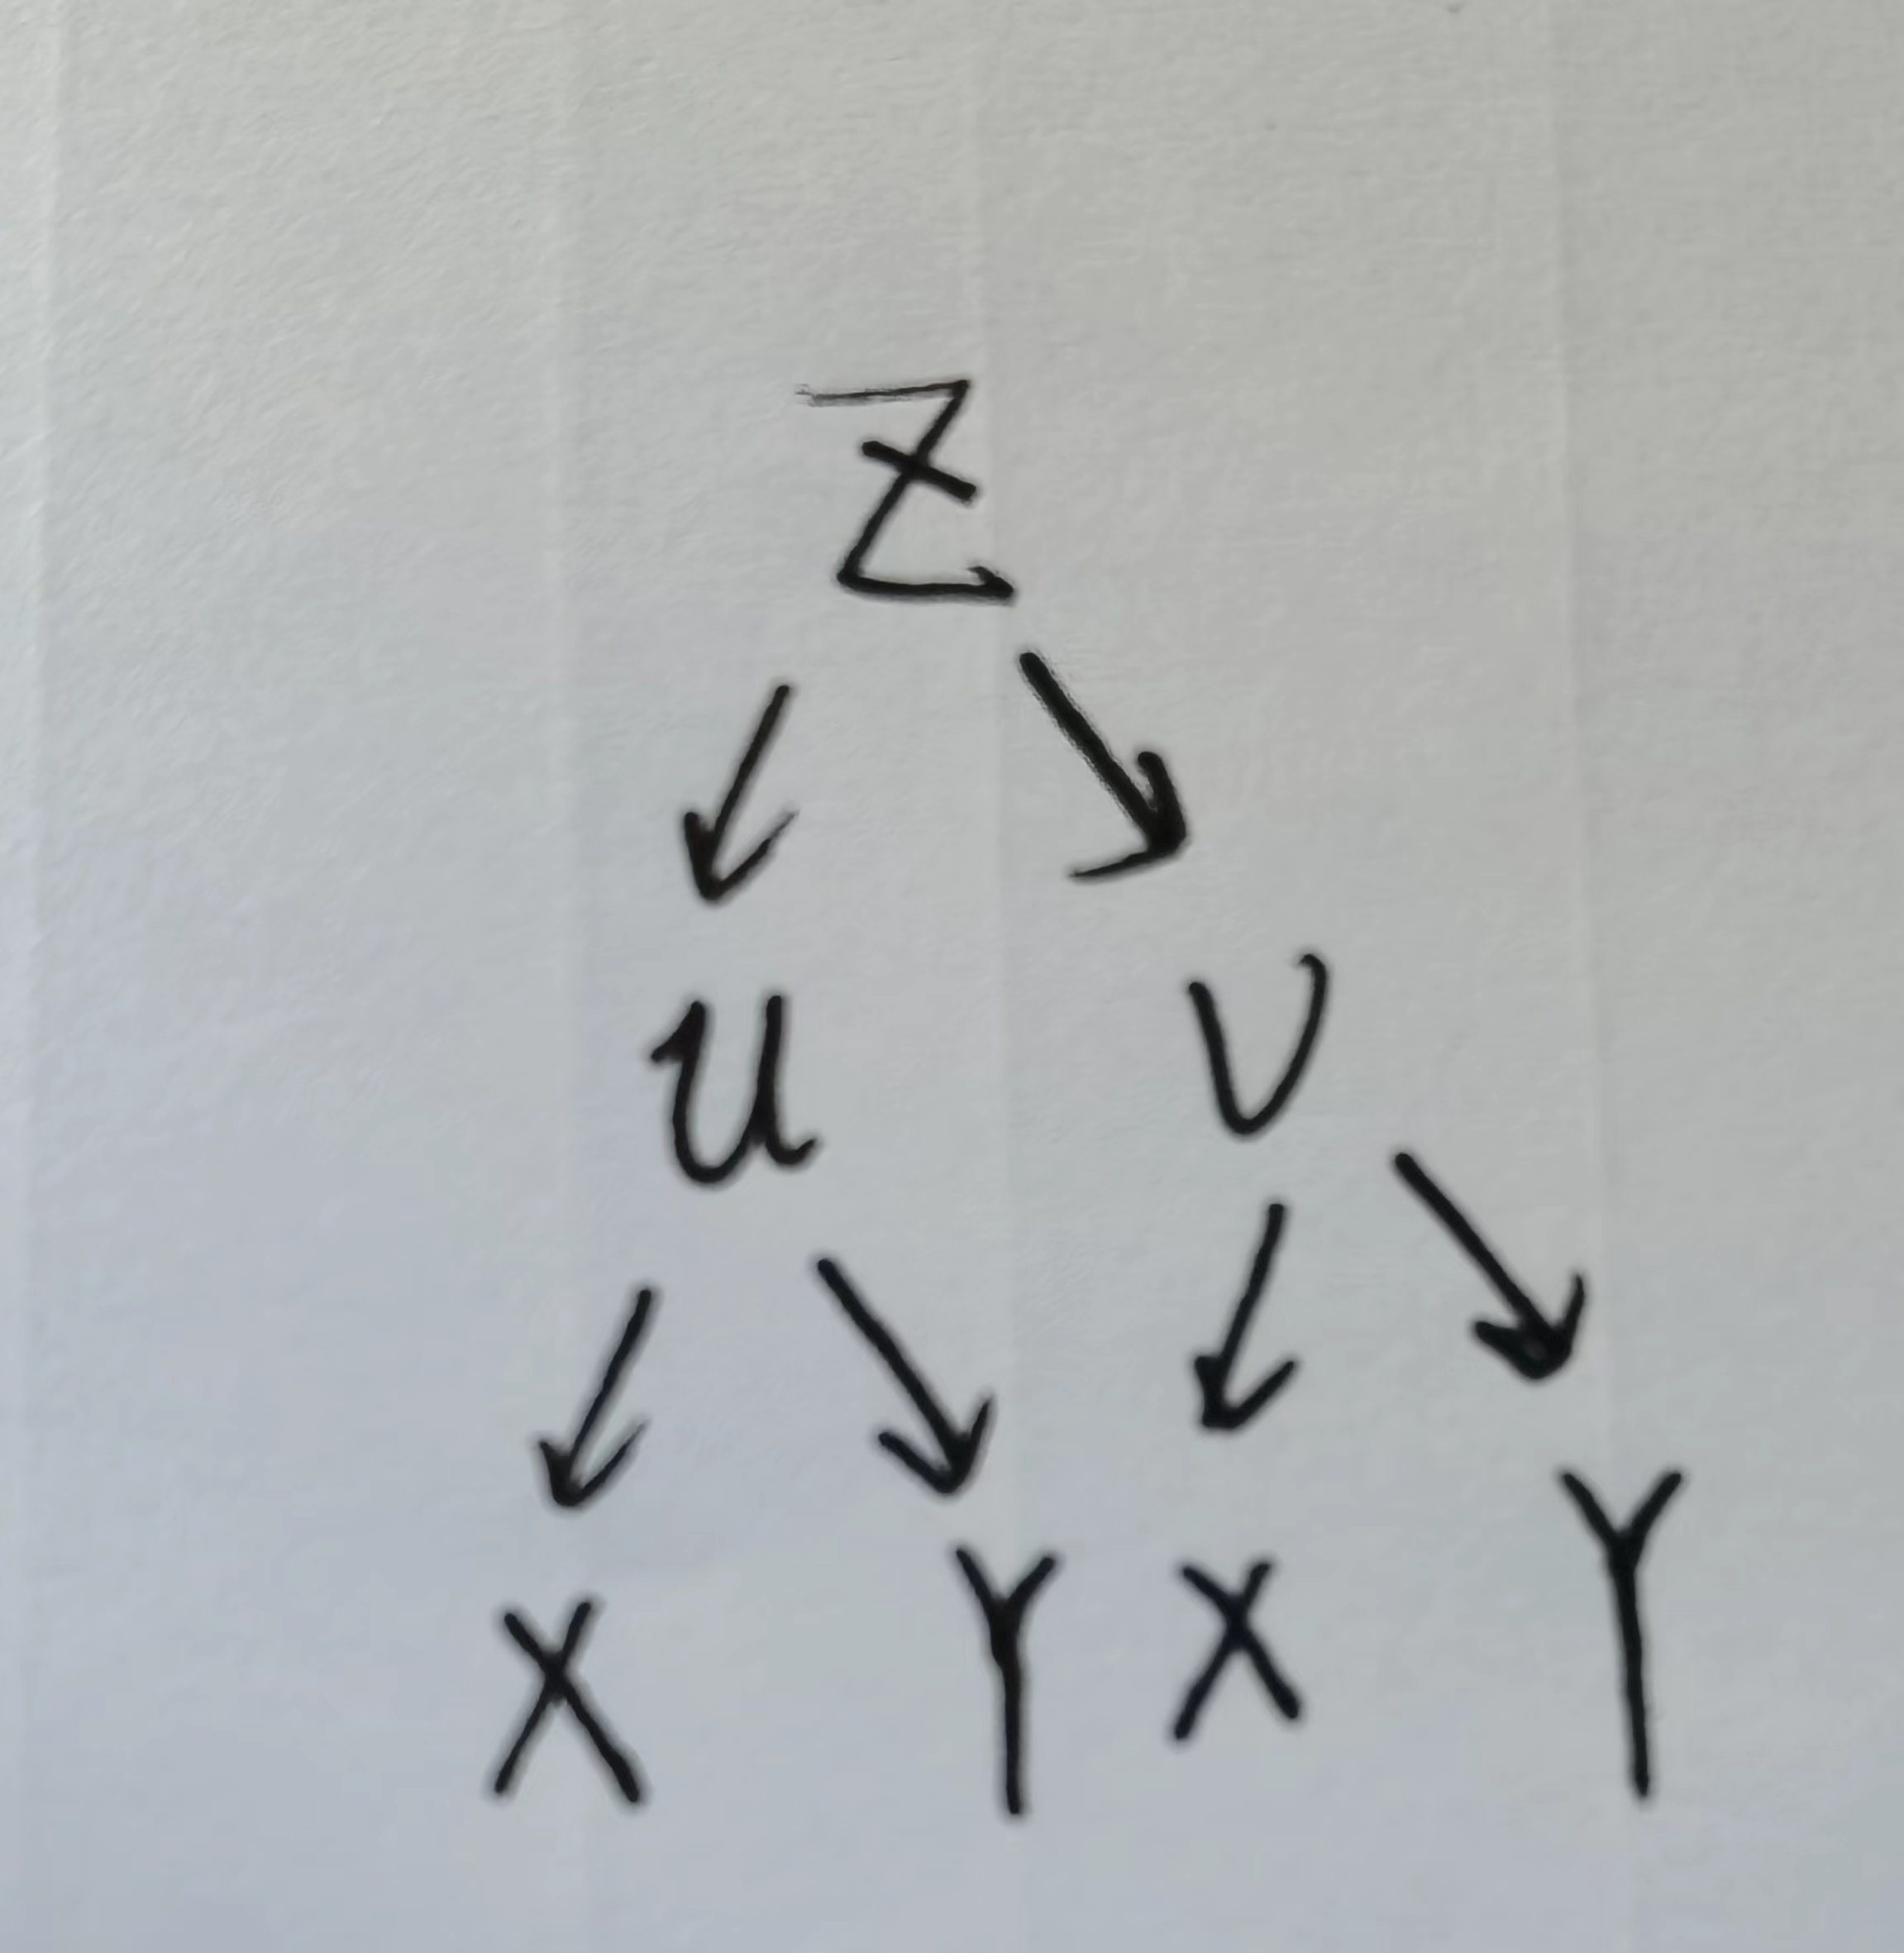 Z
u v
X Y X Y